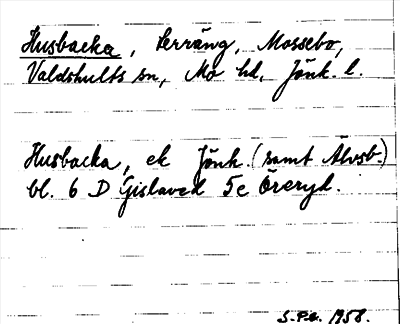 Husbacka, terräng, Mossebo,
Valdshults sn, Mo hd, Jönk. l.
Husbacka, ek Jönk. (samt Älvsb.)
bl. 6 D Gislaved 5e Öreryd.
1958.